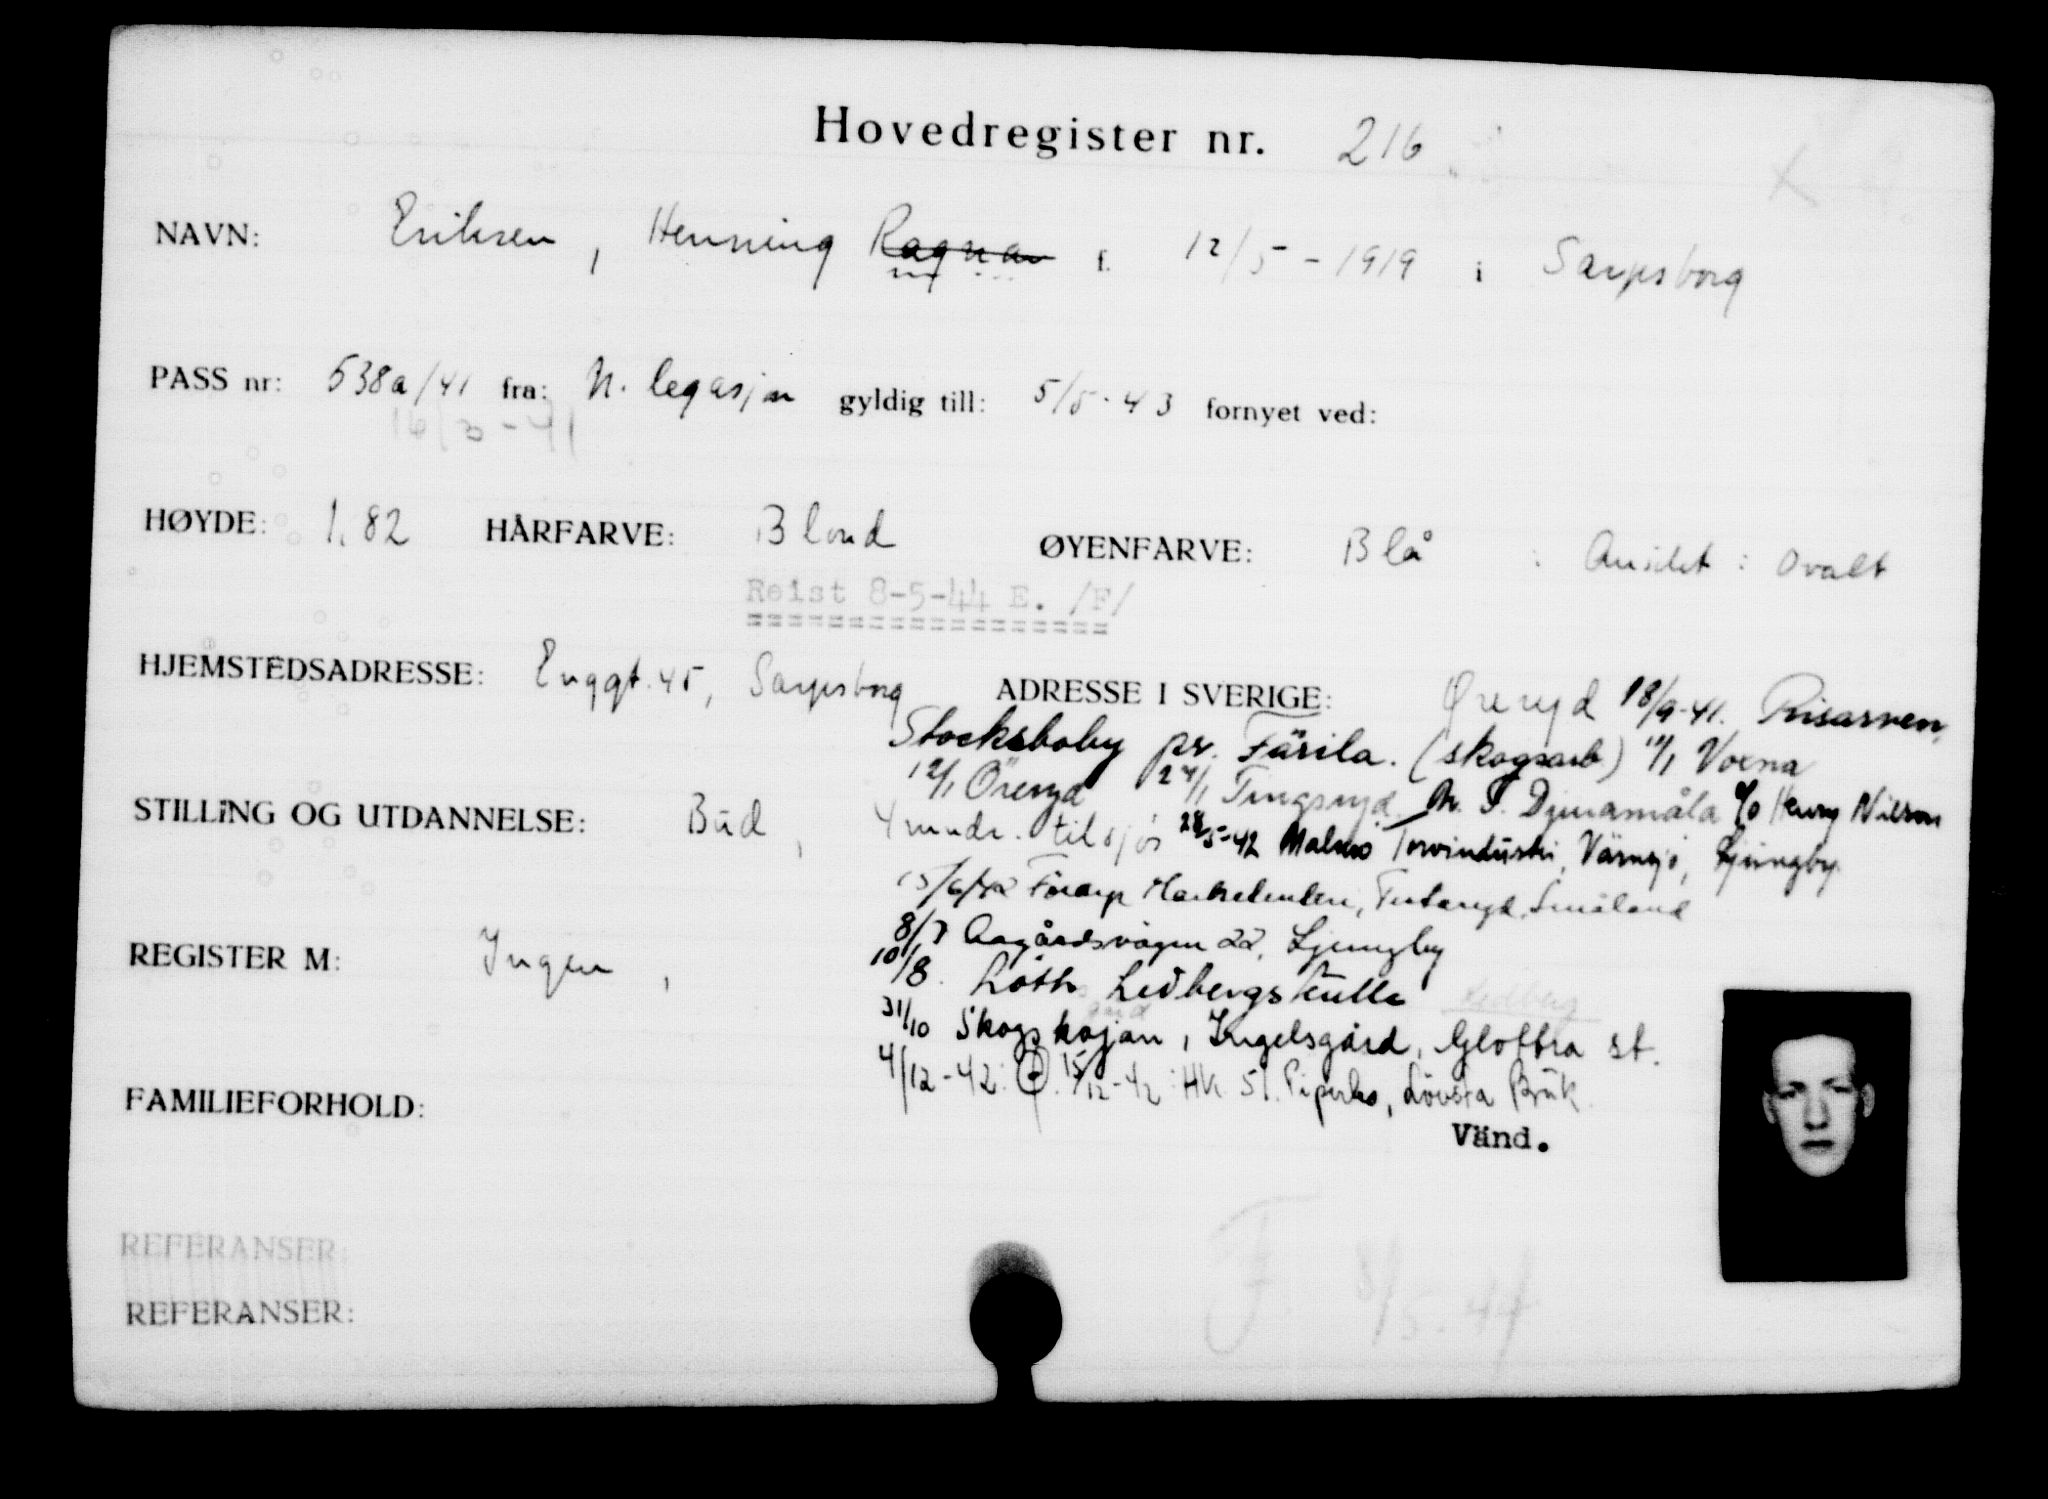 Hovedregister nr. 216
NAVN: Eriksen, Henning Ragnar f. 12/5-1919 i Sarpsborg
PASS nr: 538a/41 fra: N. legasjon gyldig till: 5/5-43 fornyet ved:
16/3-41
HØYDE: 1.82 HÅRFARVE: Blond ØYENFARVE: Blå : Ansikt: Ovalt
Reist 8-5-44 E. /F/
HJEMSTEDSADRESSE: Enggt. 45, Sarpsborg ADRESSE I SVERIGE: Øreryd 18/9-41. Risarven,
Stocksboby pr. Färila. (skogsarb) 11/1 Voxna
12/1 Öreryd 24/1 Tingsryd Djuramåla c/o Henry Nilsson
STILLING OG UTDANNELSE: Bud, 4 mndr. tilsjøs 28/5-42 Malmö Torvindustri, Värnsjö, Ljungby.
15/6/42 Markelenten, Småland
8/7 Aagårdsvägen 22, Ljungby
REGISTER M: Ingen,
10/8. Löths Ledbergskulla Ledberg
31/10 Skogskojan, Ingelsgård, Glottra st.
4/12-42: 15/12-42: HK. 51. Piperbo, Lövsta Bruk
FAMILIEFORHOLD:
Vänd.
REFERANSER:
REFERANSER:
F. 8/5-44